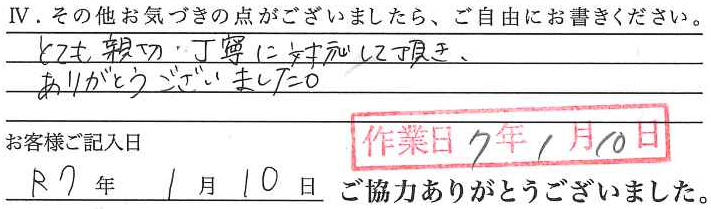 Ⅳ．その他お気づきの点がございましたら、ご自由にお書きください。
とても親切・丁寧に対応して頂き、
ありがとうございました。
お客様ご記入日
作業日 7年1月10日
R7年 1月10日
ご協力ありがとうございました。